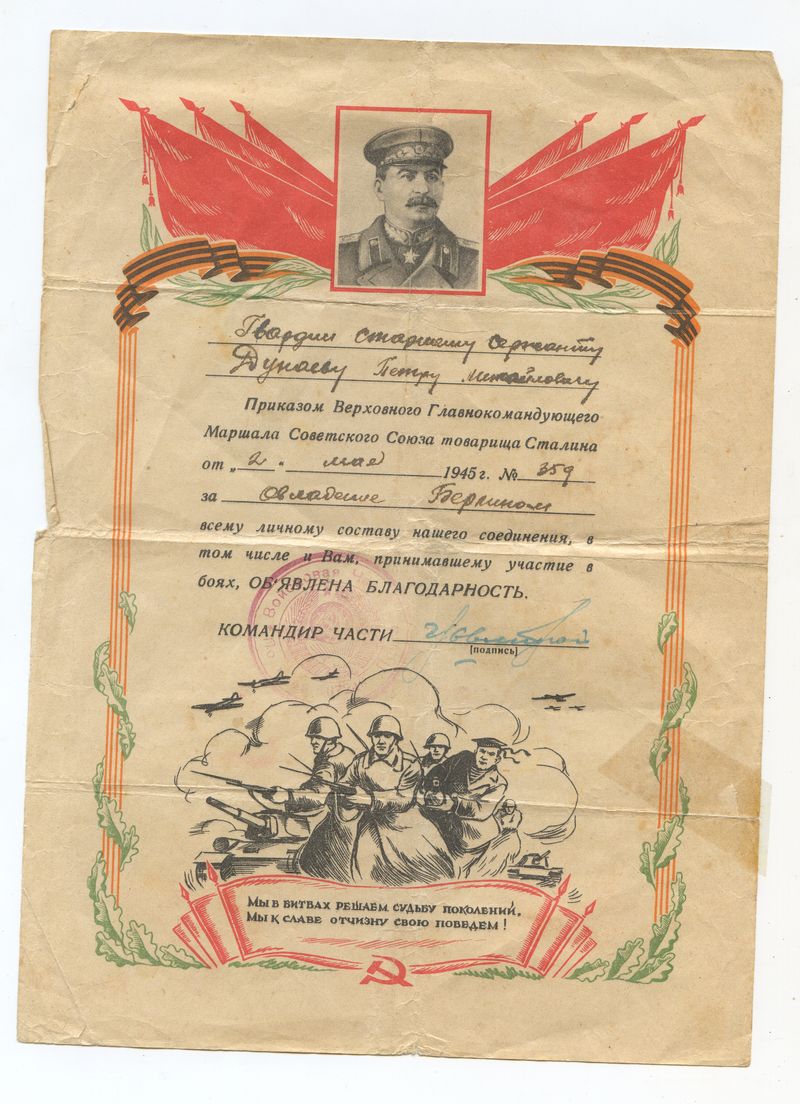 Гвардии старшему сержанту
Дунаеву Петру Михайловичу
Приказом Верховного Главнокомандующего
Маршала Советского Союза товарища Сталина
от „2" мая 1945 г. № 359
за овладение Берлином
всему личному составу нашего соединения, в
том числе и Вам, принимавшему участие в
боях, ОБ'ЯВЛЕНА БЛАГОДАРНОСТЬ.
КОМАНДИР ЧАСТИ
[подпись]
Мы в битвах решаем судьбу поколений,
Мы к славе отчизну свою поведем!